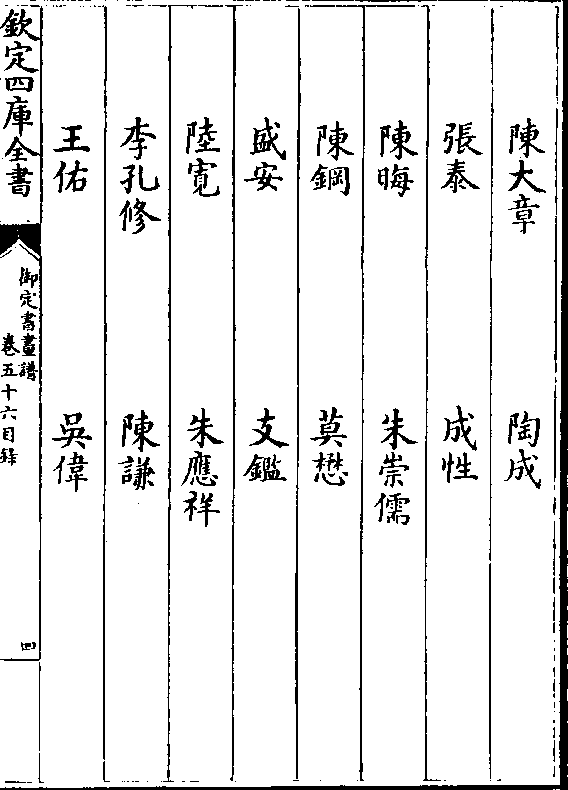 陳大章　陶成
張泰　成性
陳晦　朱崇儒
陳鋼　莫懋
盛安　支鑑
陸寛　朱應祥
李孔修　陳謙
王佑　吳偉
欽定四庫全書
御定書畫譜
卷五十六目錄
四